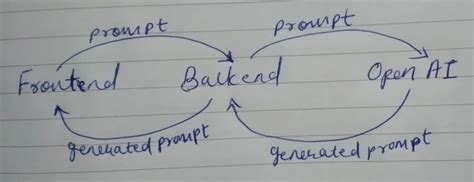 prompt prompt
Frontend Backend Open AI
generated prompt generated prompt